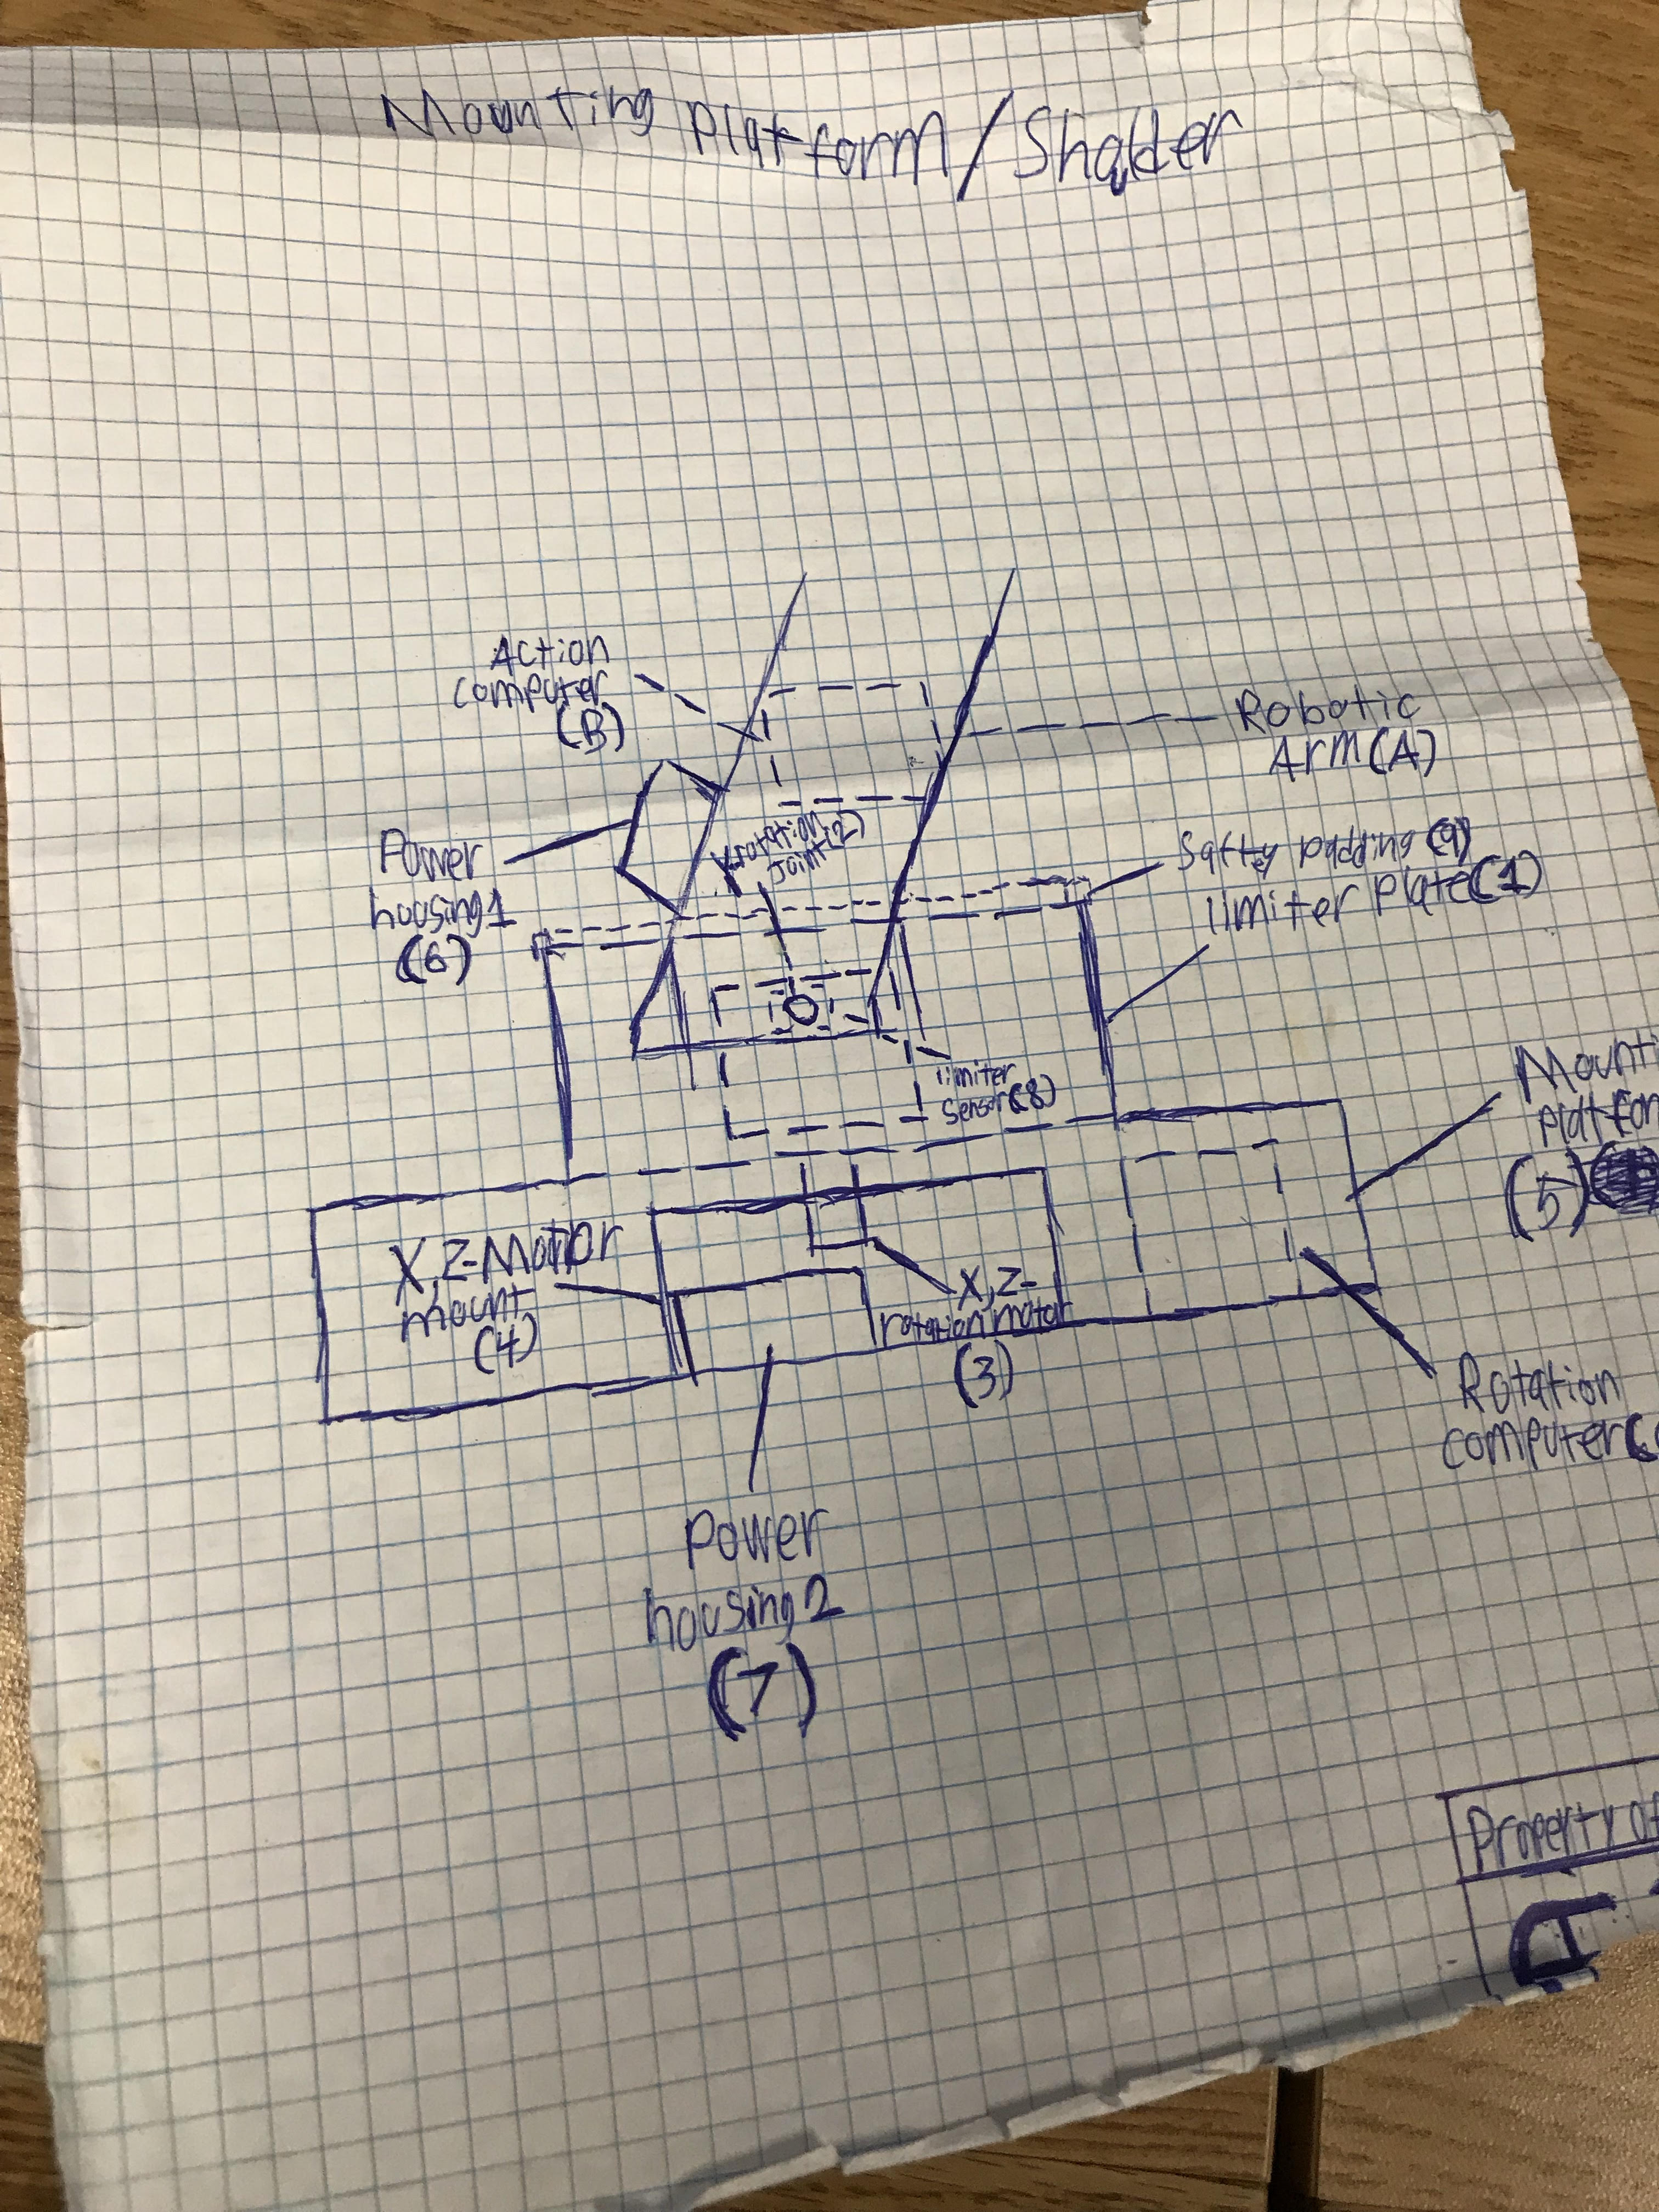 Mounting Platform/Shalder
Action
computer
(B)
Robotic
Arm(A)
Power
housing1
(6)
rotation
Joint(2)
Safty padding (9)
limiter Plate(1)
limiter
Sensor(8)
Mounti
Platfor
(5)
X,Z-Motor
mount
(4)
X,Z-
rotation motor
(3)
Rotation
computer(
Power
housing2
(7)
Property of
A